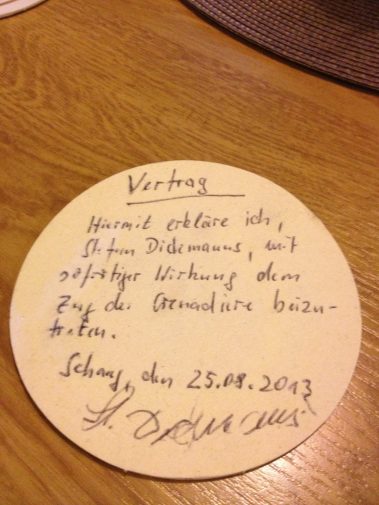 Vertrag
Hiermit erkläre ich,
Stefan Dickmanns, mit
sofortiger Wirkung dem
Zug der Grenadiere beizu-
treten.
den 25.08.2013
St.